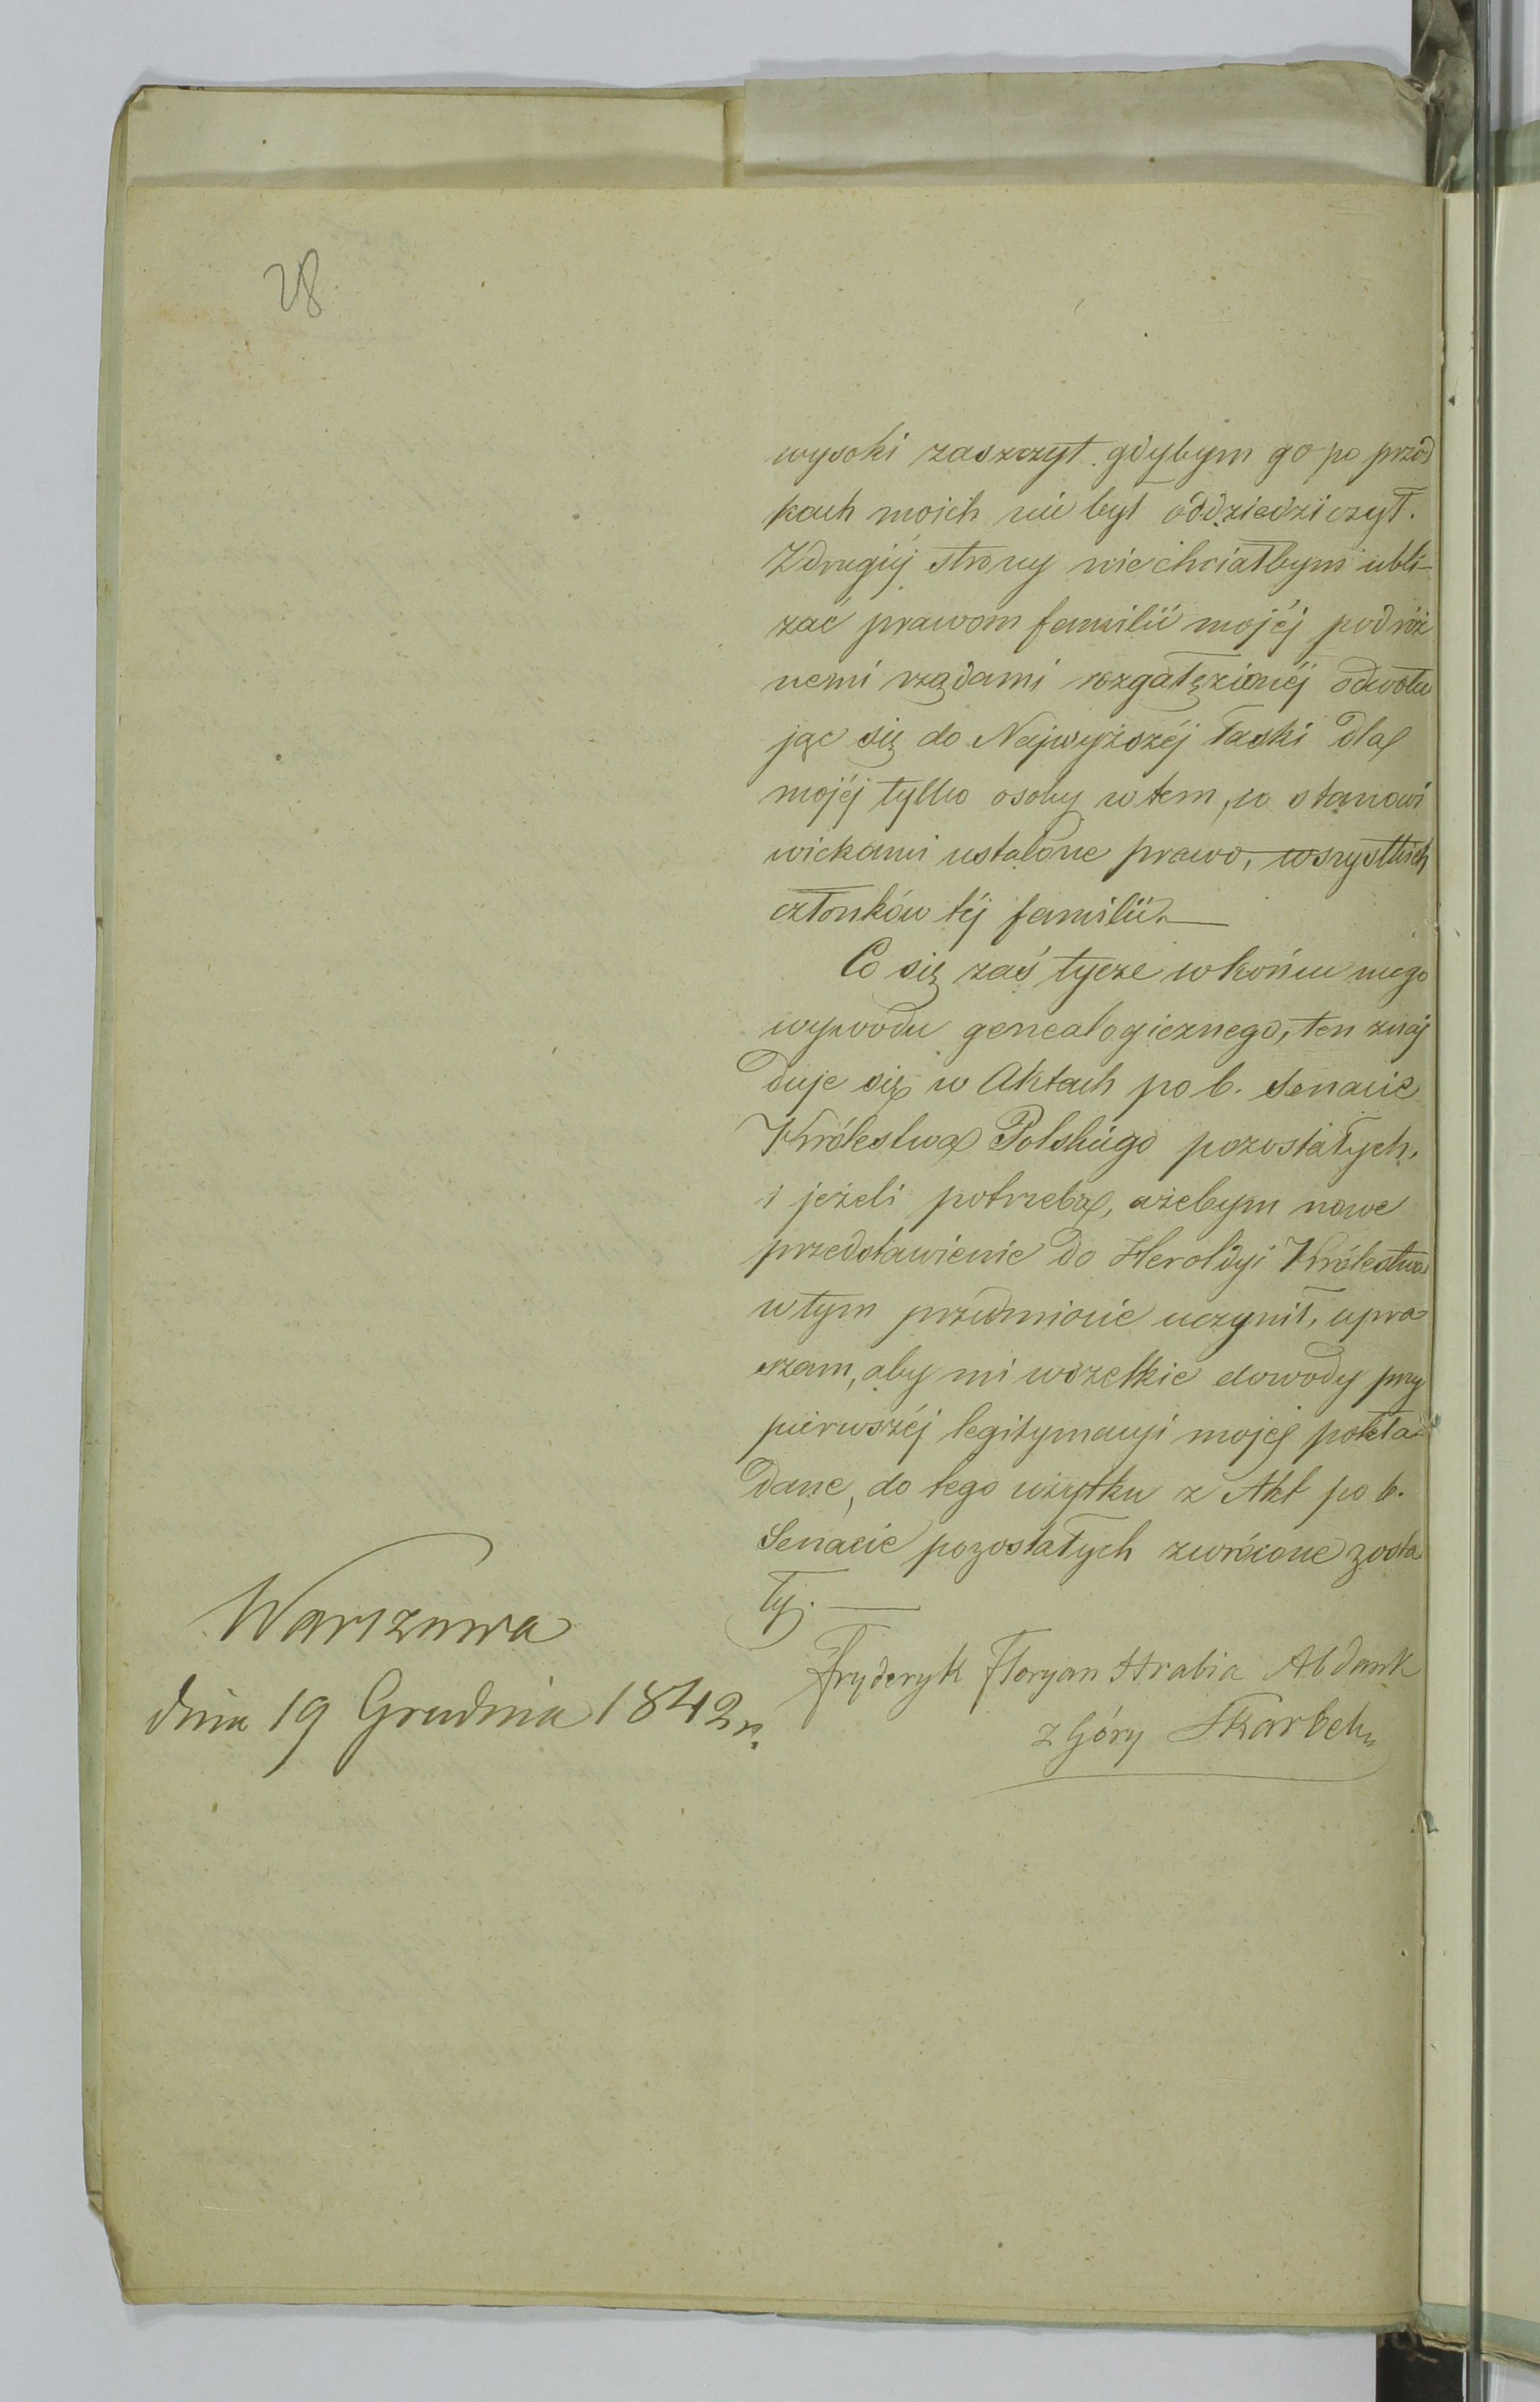 28
wysoki zaszczyt gdybym go po przod
kach moich nie był oddziedziczył.
Zdrugiéj strony niechciałbym ubli-
żać prawom familii mojéj pod róż
nemi rządami rozgałęzionéj odwołu
jąc się do Najwyższéj łaski dla
mojéj tylko osoby wtem, co stanowi
wiekami ustalone prawo, wszystkich
członków téj familii.
Co się zaś tycze wkońcu mego
wywodu genealogicznego, ten znaj
duje się w Aktach po b. Senacie
Królestwa Polskiego pozostałych,
i jeżeli potrzeba, ażebym nowe
przedstawienie do Heroldyi Królestwa
wtym przedmiocie uczynił, upra
szam, aby mi wszelkie dowody przy
pierwszéj legitymacyi mojéj pokła-
dane, do tego użytku z Akt po b.
Senacie pozostałych zwrócone zosta
ły.
Warszawa
dnia 19 Grudnia 1842 r.
Fryderyk Floryan Hrabia Abdank
z Góry Skarbek